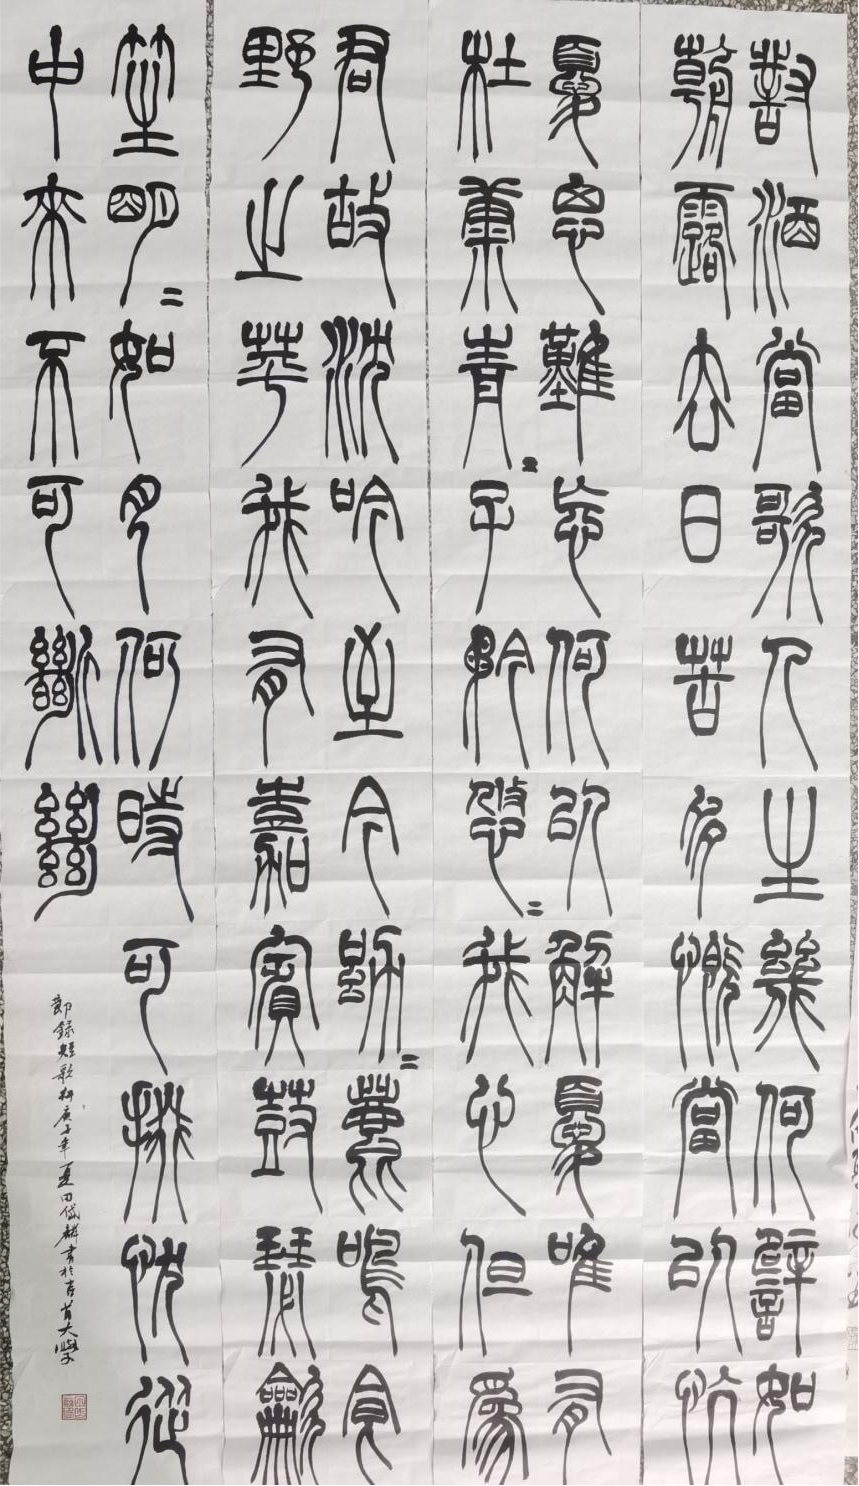 對酒當歌人生幾何譬如
朝露去日苦多慨當以忼
憂思難忘何以解憂唯有
杜康青〻子衿悠〻我心但為
君故沈吟至今呦〻鹿鳴食
野之苹我有嘉賓鼓瑟龡
笙明〻如月何時可掇忧從
中來不可斷絕
節錄短歌行庚子年夏田岱麟書於吉首大學